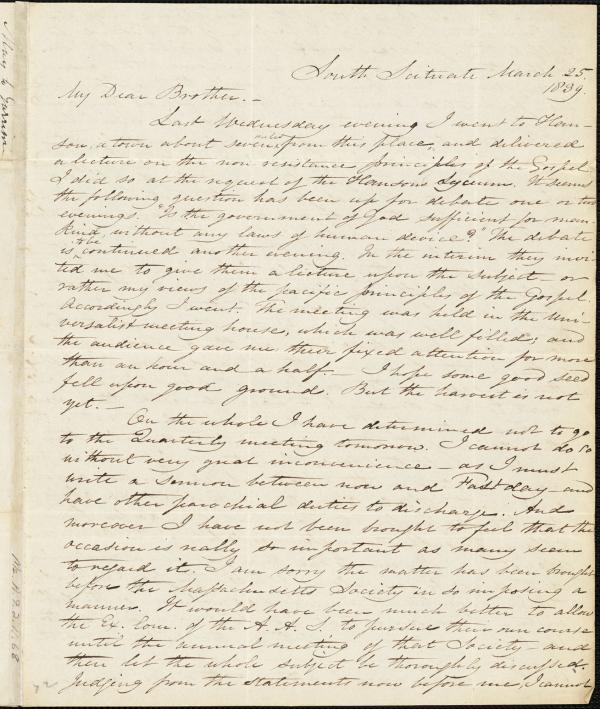 South Scituate March 25.
1839.
My Dear Brother. —
Last Wednesday evening I went to Han-
son, a town about seven miles from this place, and delivered
a lecture on the non resistance principles of the Gospel.
I did so at the request of the Hanson Lyceum. It seems
the following question has been up for debate one or two
evenings. "Is the government of God sufficient for man-
kind without any laws of human device?" The debate
is to be continued another evening. In the interim they invi-
ted me to give them a lecture upon the subject or
rather my views of the pacific principles of the Gospel.
Accordingly I went. The meeting was held in the Uni-
versalist meeting house, which was well filled; and
the audience gave me their fixed attention for more
than an hour and a half. — I hope some good seed
fell upon good ground. But the harvest is not
yet. —
On the whole I have determined not to go
to the Quarterly meeting tomorrow. I cannot do so
without very great inconvenience — as I must
write a sermon between now and Fast day — and
have other parochial duties to discharge. And
moreover I have not been brought to feel that the
occasion is really so important as many seem
to regard it. I am sorry the matter has been brought
before the Massachusetts Society in so imposing a
manner. It would have been much better to allow
the Ex. Com. of the A. A. S. to pursue their own course
until the annual meeting of that Society — and
then let the whole subject be thoroughly discussed.
Judging from the statements now before me, I cannot
May to Garrison